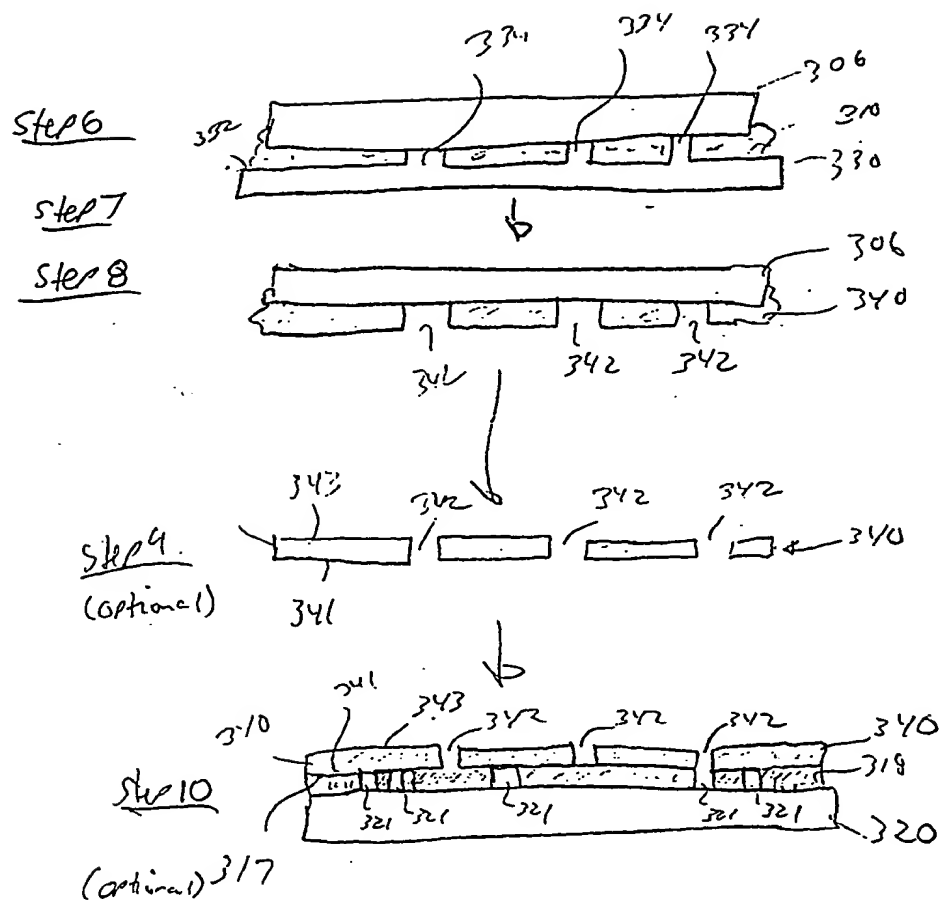 334 334 334
306
Step 6
332
310
330
Step 7
Step 8
306
340
342 342
343 342 342 342
340
Step 9
(optional)
341
341 343 342 342 342
340
318
Step 10
321 321 321 321 321
320
(optional) 317